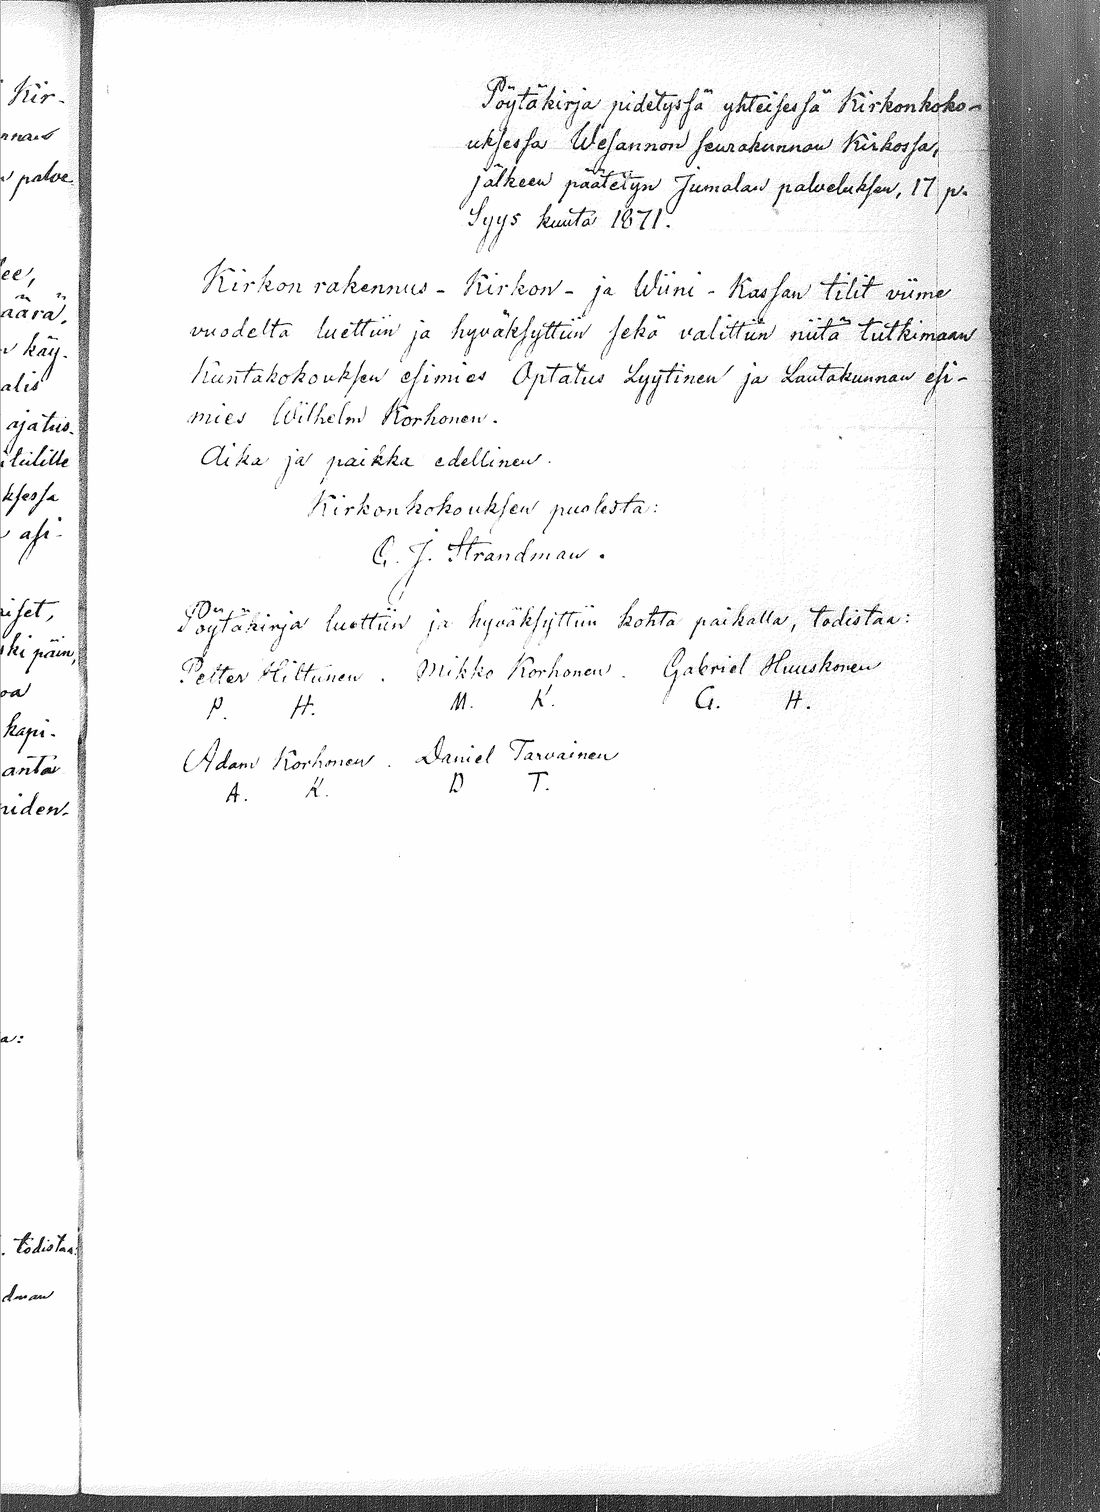 Kir-
nnan
palve
ee,
äärä,
käy-
alis
ajatus-
itulille
ksessa
asi-
niset,
ski päin,
oa
kapi-
anta
niden-
a:
todistaa:
dman
Pöytäkirja pidetyssä yhteisessä Kirkonkoko-
uksessa Wesannon seurakunnan Kirkossa,
jälkeen päätetyn Jumalan palveluksen, 17 p.
Syys kuuta 1871.
Kirkon rakennus- Kirkon- ja Wiini-Kassan tilit viime
vuodelta luettiin ja hyväksyttiin sekä valittiin niitä tutkimaan
Kuntakokouksen esimies Optatus Lyytinen ja Lautakunnan esi-
mies Wilhelm Korhonen.
Aika ja paikka edellinen.
Kirkonkokouksen puolesta:
C. J. Strandman.
Pöytäkirja luettiin ja hyväksyttiin kohta paikalla, todistaa:
Petter Hiltunen. Mikko Korhonen. Gabriel Huuskonen
P. H. M. K. G. H.
Adam Korhonen. Daniel Tarvainen
A. K. D T.